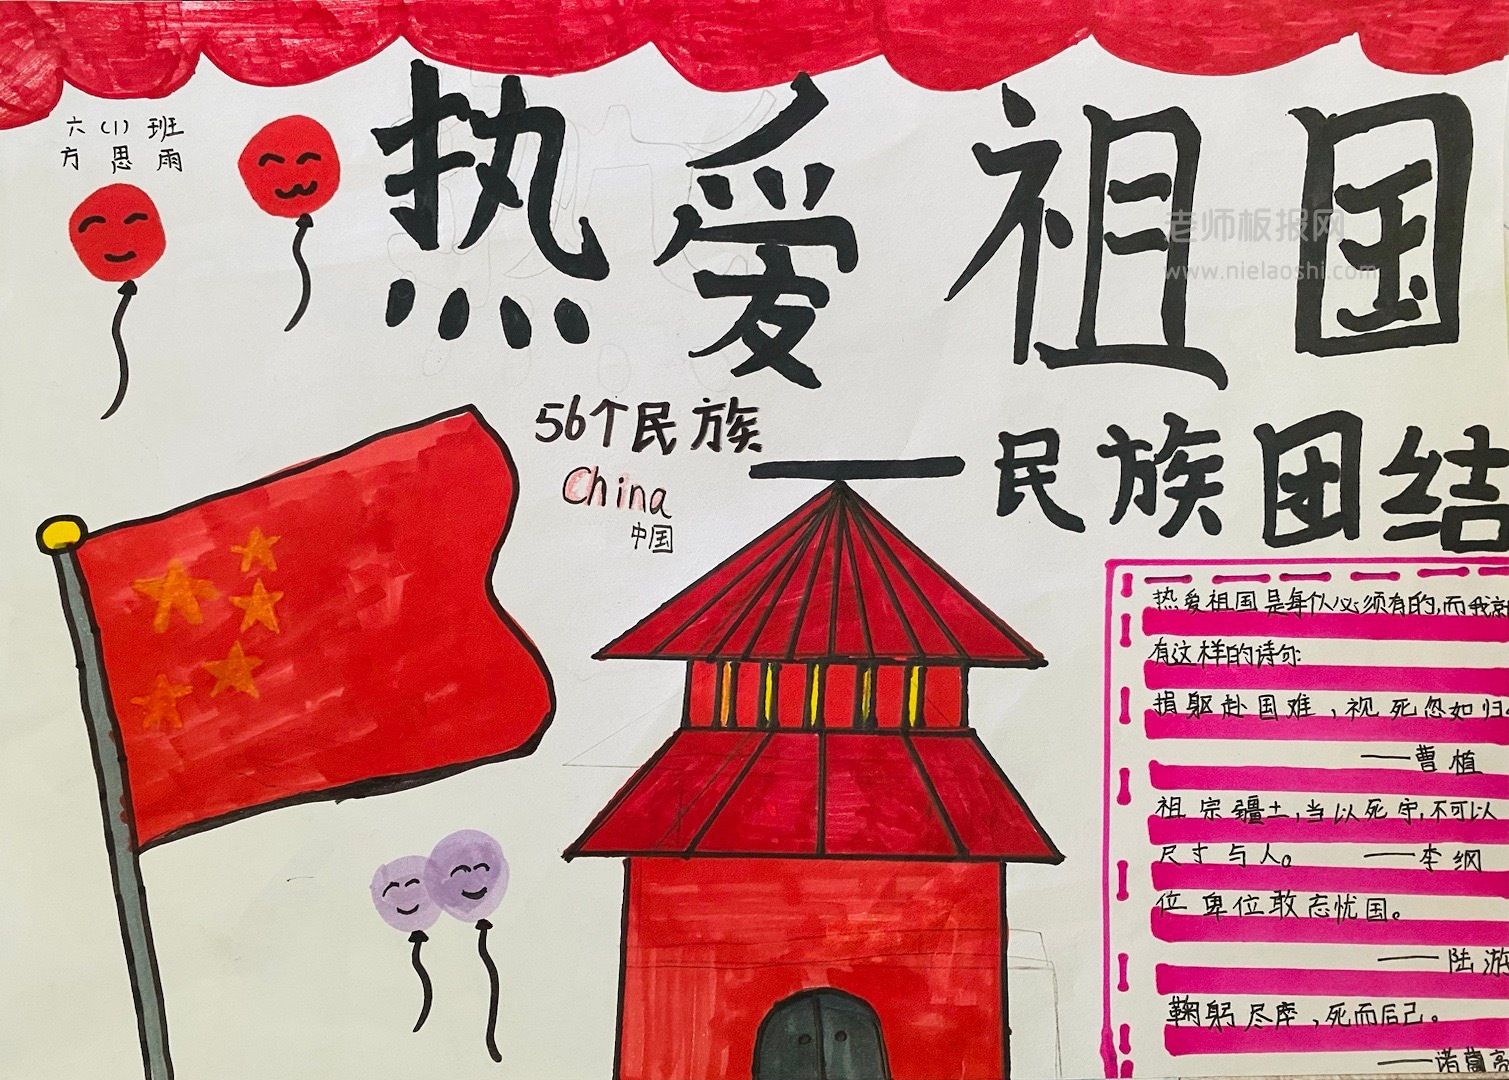 六(1)班
方思雨
热爱祖国
老师板报网
www.nielaoshi.com
56个民族
China
中国
民族团结
热爱祖国是每个人必须有的,而我
有这样的诗句:
捐躯赴国难,视死忽如归
——曹植
祖宗疆土,当以死守,不可以
尺寸与人。——李纲
位卑位敢忘忧国。
——陆游
鞠躬尽瘁,死而后己。
——诸葛亮